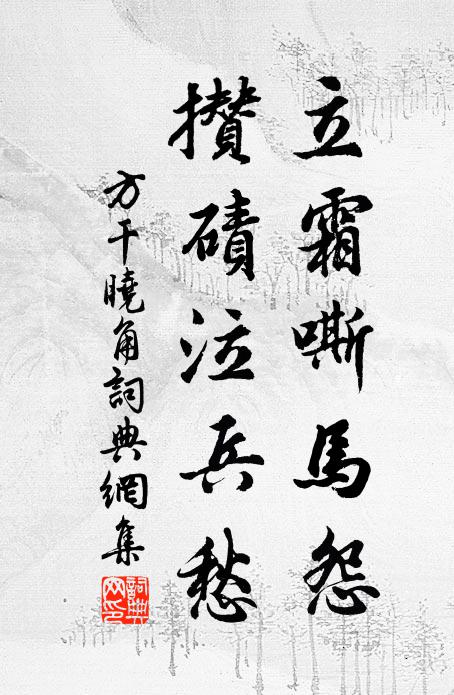 立霜嘶馬怨
攢磧泣兵愁
方干曉角詞典網集